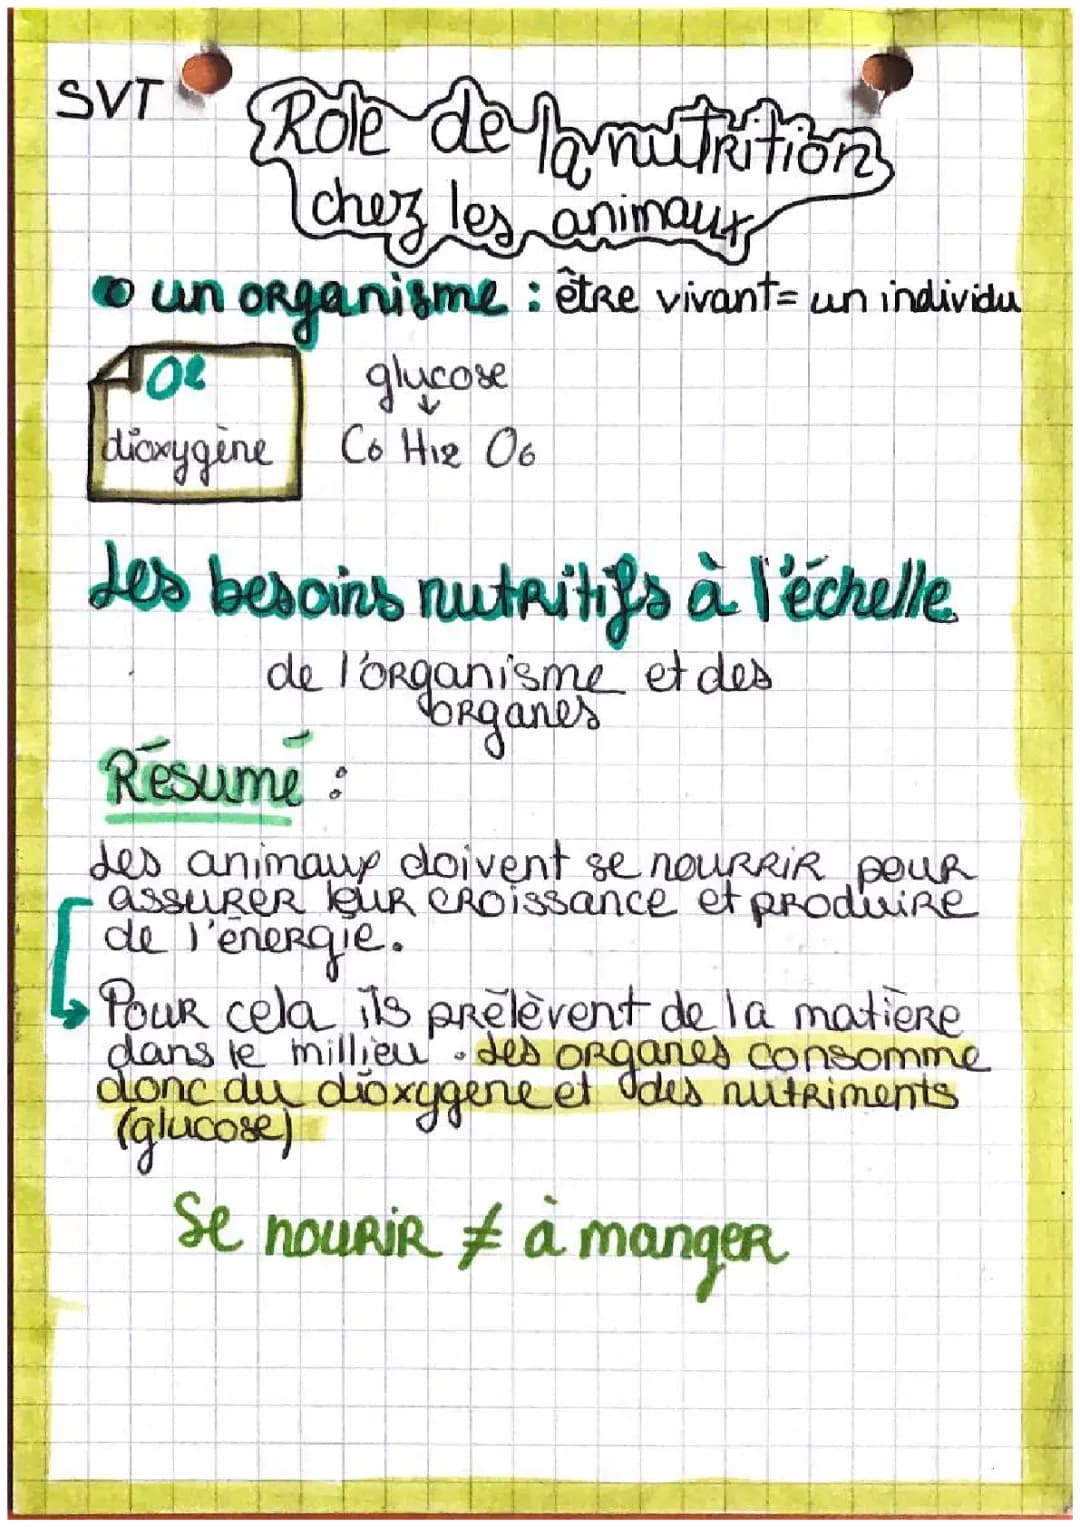 SVT
Role de la nutrition
chez les animaux
un organisme : être vivant = un individu
O2
dioxygène
glucose
↓
C6 H12 O6
Les besoins nutritifs à l'échelle
de l'organisme et des
organes
Résumé :
Les animaux doivent se nourrir pour
assurer leur croissance et produire
de l'énergie.
Pour cela ils prélèvent de la matière
dans le millieu . Les organes consomme
donc du dioxygene et des nutriments
(glucose)
Se nourir ≠ à manger